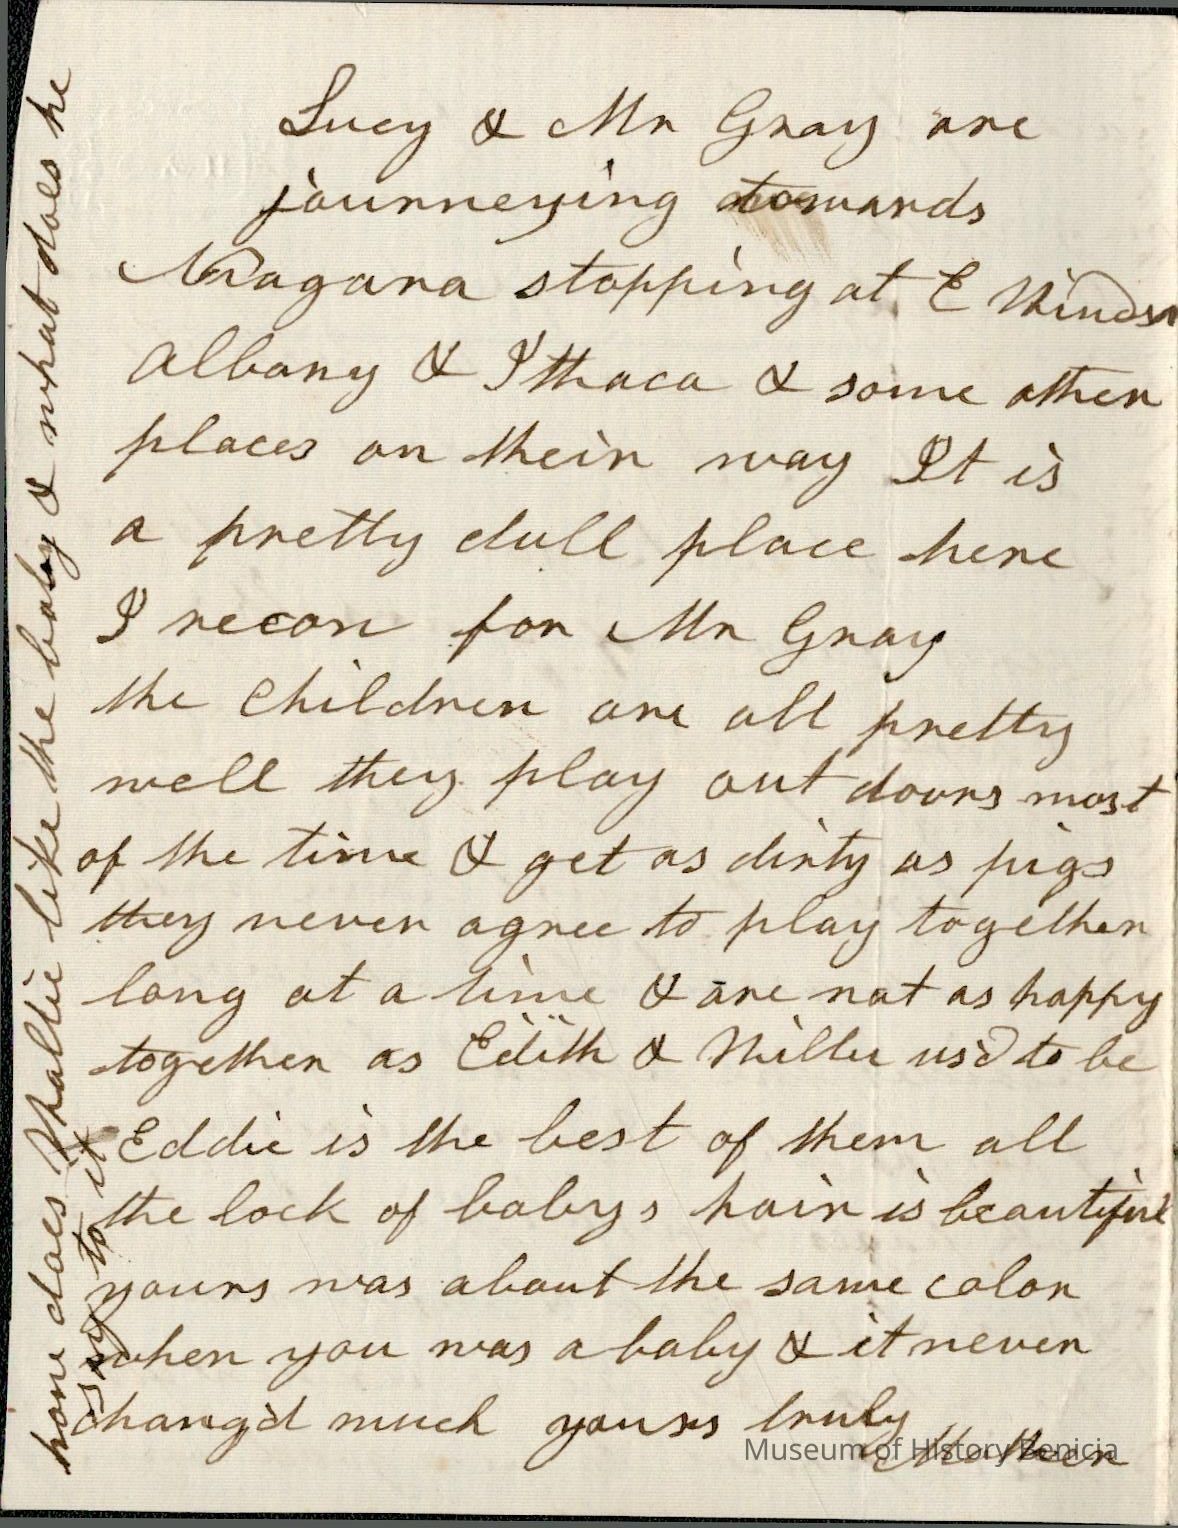 Lucy & Mr Gray are
journeying towards
Niagara stopping at E Windsor
Albany & Ithaca & some other
places on their way It is
a pretty dull place here
I recon for Mr Gray
the children are all pretty
well they play out doors most
of the time & get as dirty as pigs
they never agree to play together
long at a time & are not as happy
together as Edith & Willie us'd to be
Eddie is the best of them all
the lock of babys hair is beautiful
yours was about the same color
when you was a baby & it never
chang'd much yours truly
Mother
how does Wallie like the baby & what does he
say to it
Museum of History Benicia